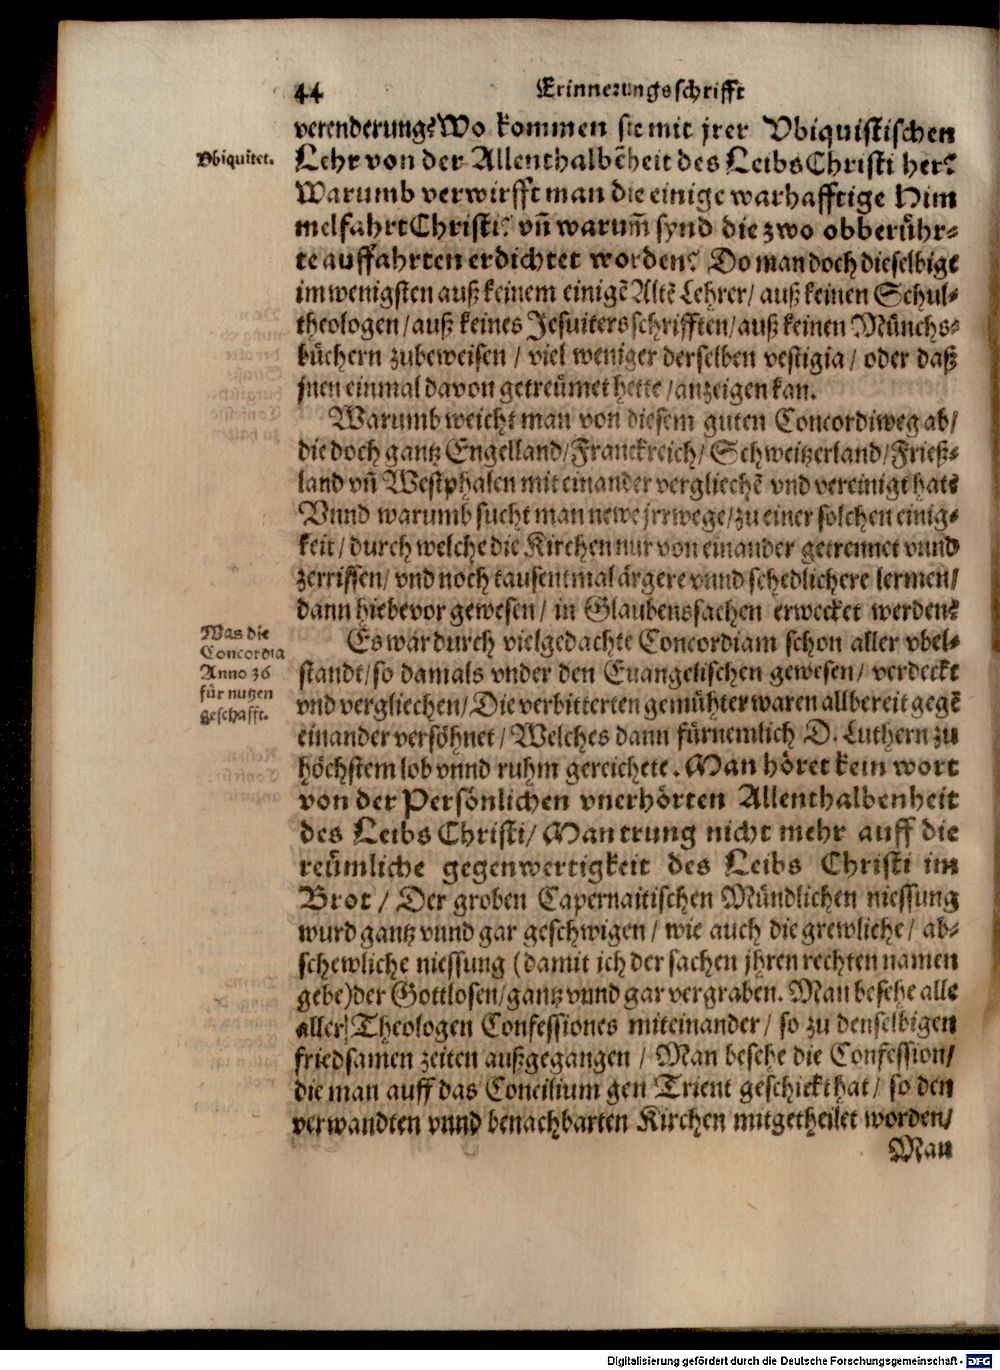 44 Erinnerungsschrifft
verenderung? Wo kommen sie mit jrer Vbiquistischen
Vbiquitet.
Lehr von der Allenthalbẽheit des Leibs Christi her?
Warumb verwirfft man die einige warhafftige Him
melfahrt Christi? vñ warum̃ synd die zwo obberühr-
te auffahrten erdichtet worden? Do man doch dieselbige
im wenigsten auß keinem einigẽ Altẽ Lehrer/ auß keinen Schul-
theologen/ auß keines Jesuiters schrifften/ auß keinen Münchs-
büchern zubeweisen / viel weniger derselben vestigia / oder daß
jnen einmal davon getreümet hette / anzeigen kan.
Warumb weicht man von diesem guten Concordiweg ab/
die doch gantz Engelland/ Franckreich/ Schweitzerland/ Frieß-
land vñ Westphalen miteinander vergliechẽ vnd vereinigt hat?
Vnnd warumb sucht man newe jrrwege/ zu einer solchen einig-
keit/ durch welche die Kirchen nur von einander getrennet vnnd
zerrissen/ vnd noch tausentmal ärgere vnnd schedlichere lermen/
dann hiebevor gewesen/ in Glaubenssachen erwecket werden?
Was die
Concordia
Anno 36
für nutzen
geschafft.
Es war durch vielgedachte Concordiam schon aller vbel-
standt/ so damals vnder den Euangelischen gewesen/ verdeckt
vnd vergliechen/ Die verbitterten gemühter waren allbereit gegẽ
einander versöhnet/ Welches dann fürnemlich D. Luthern zu
höchstem lob vnnd ruhm gereichete. Man höret kein wort
von der Persönlichen vnerhörten Allenthalbenheit
des Leibs Christi/ Man trung nicht mehr auff die
reümliche gegenwertigkeit des Leibs Christi im
Brot / Der groben Capernaitischen Mündlichen niessung
wurd gantz vnnd gar geschwigen / wie auch die grewliche/ ab-
schewliche niessung (damit ich der sachen jhren rechten namen
gebe) der Gottlosen/ gantz vnnd gar vergraben. Man besehe alle
aller Theologen Confessiones miteinander / so zu denselbigen
friedsamen zeiten außgegangen / Man besehe die Confession/
die man auff das Concilium gen Trient geschickt hat / so den
verwandten vnnd benachbarten Kirchen mitgetheilet worden/
Man
Digitalisierung gefördert durch die Deutsche Forschungsgemeinschaft - DFG